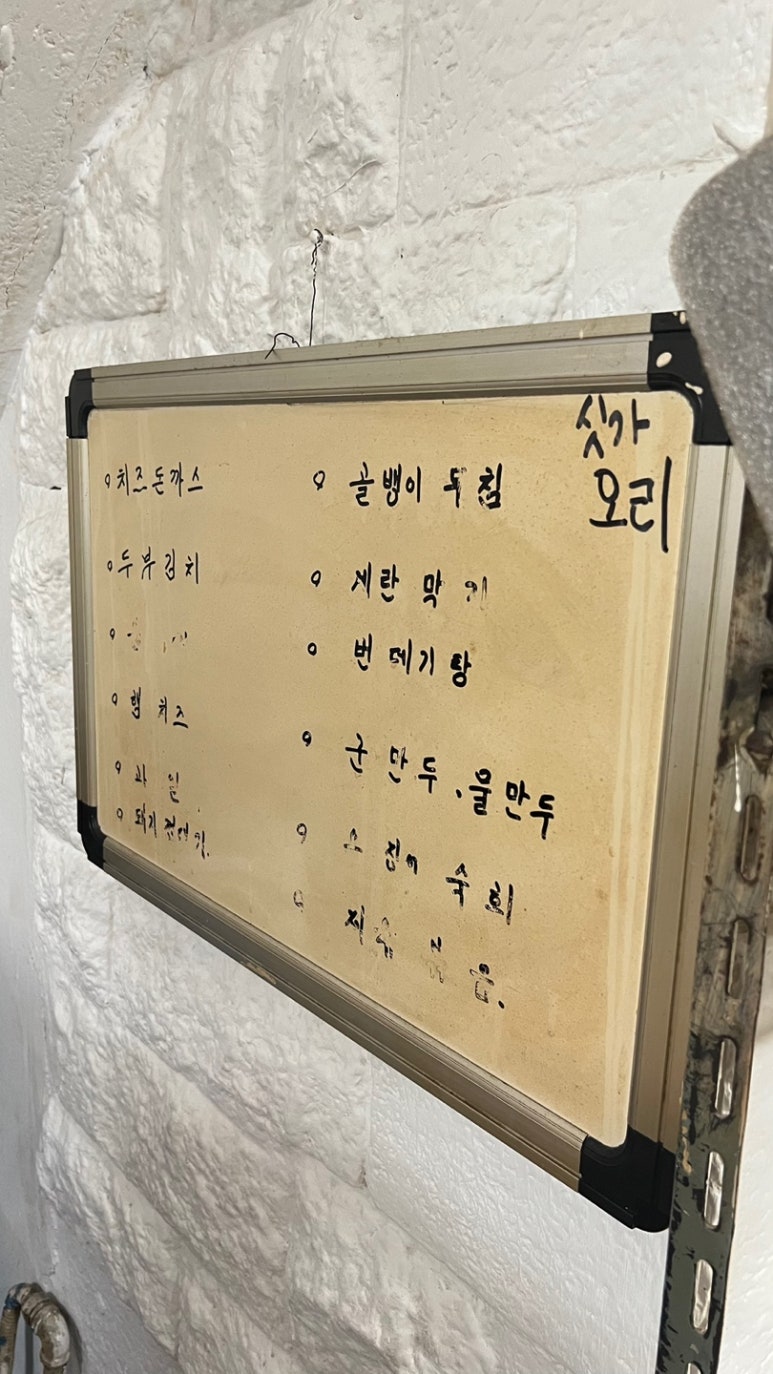 치즈돈까스
두부김치
햄 치즈
과 일
돼지 껍데기.
골뱅이 무침
계란 막
번데기탕
군 만두, 물만두
숙회
제육
싯가
오리